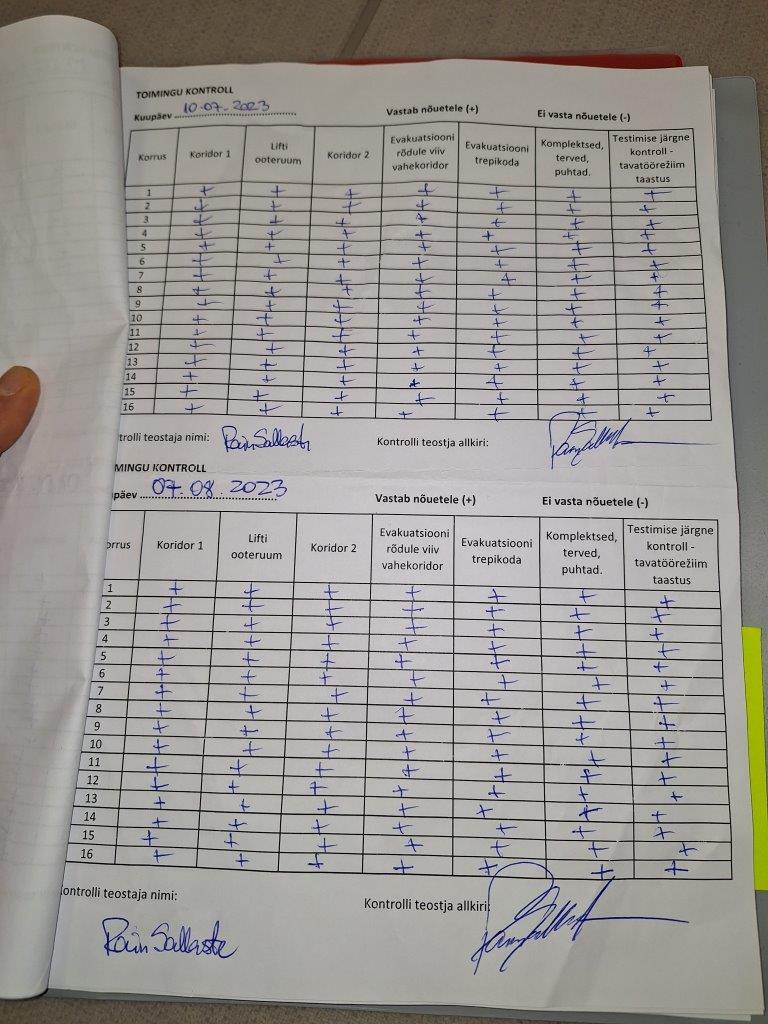 TOIMINGU KONTROLL
Kuupäev 10.07.2023 Vastab nõuetele (+) Ei vasta nõuetele (-)
Korrus Koridor 1 Lifti ooteruum Koridor 2 Evakuatsiooni rõdule viiv vahekoridor Evakuatsiooni trepikoda Komplektsed, terved, puhtad. Testimise järgne kontroll - tavatöörežiim taastus
1 + + + + + + +
2 + + + + + + +
3 + + + + + + +
4 + + + + + + +
5 + + + + + + +
6 + + + + + + +
7 + + + + + + +
8 + + + + + + +
9 + + + + + + +
10 + + + + + + +
11 + + + + + + +
12 + + + + + + +
13 + + + + + + +
14 + + + + + + +
15 + + + + + + +
16 + + + + + + +
trolli teostaja nimi: Rain Sallaste Kontrolli teostja allkiri:
MINGU KONTROLL
päev 07.08.2023 Vastab nõuetele (+) Ei vasta nõuetele (-)
orrus Koridor 1 Lifti ooteruum Koridor 2 Evakuatsiooni rõdule viiv vahekoridor Evakuatsiooni trepikoda Komplektsed, terved, puhtad. Testimise järgne kontroll - tavatöörežiim taastus
1 + + + + + + +
2 + + + + + + +
3 + + + + + + +
4 + + + + + + +
5 + + + + + + +
6 + + + + + + +
7 + + + + + + +
8 + + + + + + +
9 + + + + + + +
10 + + + + + + +
11 + + + + + + +
12 + + + + + + +
13 + + + + + + +
14 + + + + + + +
15 + + + + + + +
16 + + + + + + +
ontrolli teostaja nimi: Kontrolli teostja allkiri:
Rain Sallaste